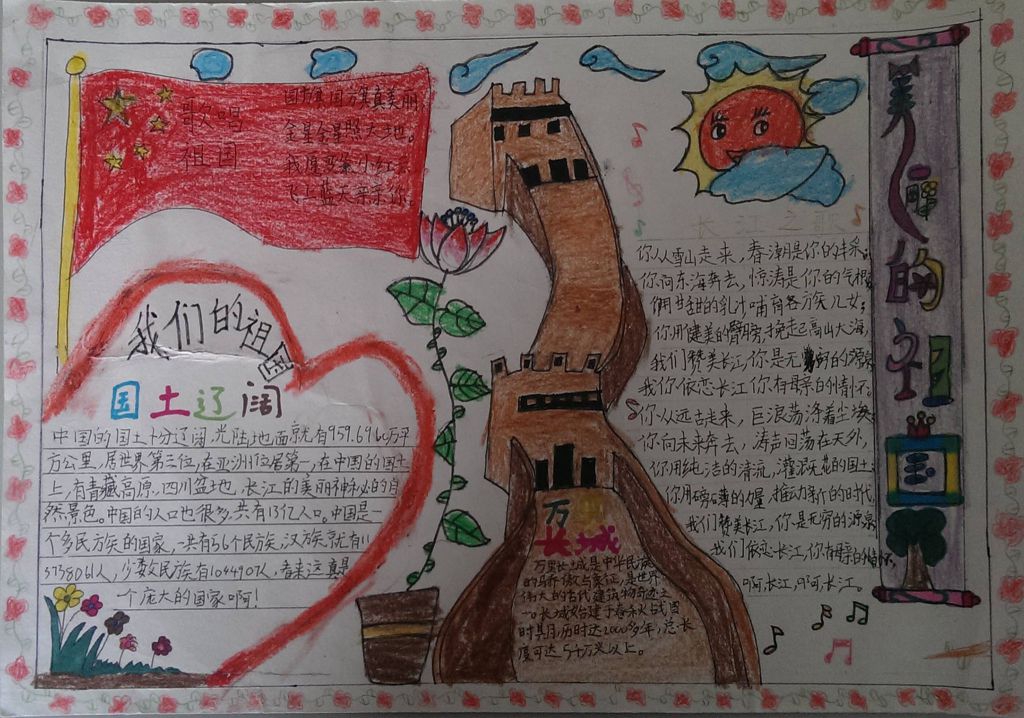 歌唱
祖国
我们的祖国
国土辽阔
中国的国土十分辽阔,光陆地面就有959.6960万平
方公里,居世界第三位,在亚洲位居第一,在中国的国土
上,有青藏高原,四川盆地,长江的美丽神秘的自
然景色。中国的人口也很多,共有13亿人口。中国是一
个多民族的国家,一共有56个民族,汉族就有11
3738061人,少数民族有1044907人,看来这真是
一个庞大的国家啊!
万里
长城
万里长城是中华民族
的骄傲与象征,是世界
伟大的古代建筑物奇迹之
一。长城始建于春秋战国
时其月,历时达2000多年,总长
度可达5千万米以上。
长江之歌
你从雪山走来,春潮是你的丰采;
你向东海奔去,惊涛是你的气概
你用健美的臂膀,挽起高山大海,
我们赞美长江,你是无穷的源泉
我们依恋长江,你有母亲的情怀。
你从远古走来,巨浪荡涤着尘埃
你向未来奔去,涛声回荡在天外,
你用纯洁的清流,灌溉花的国土
你用磅礴的力量,推动新的时代,
我们赞美长江,你是无穷的源泉
我们依恋长江,你有母亲的情怀,
啊,长江,啊,长江。
美丽的祖国